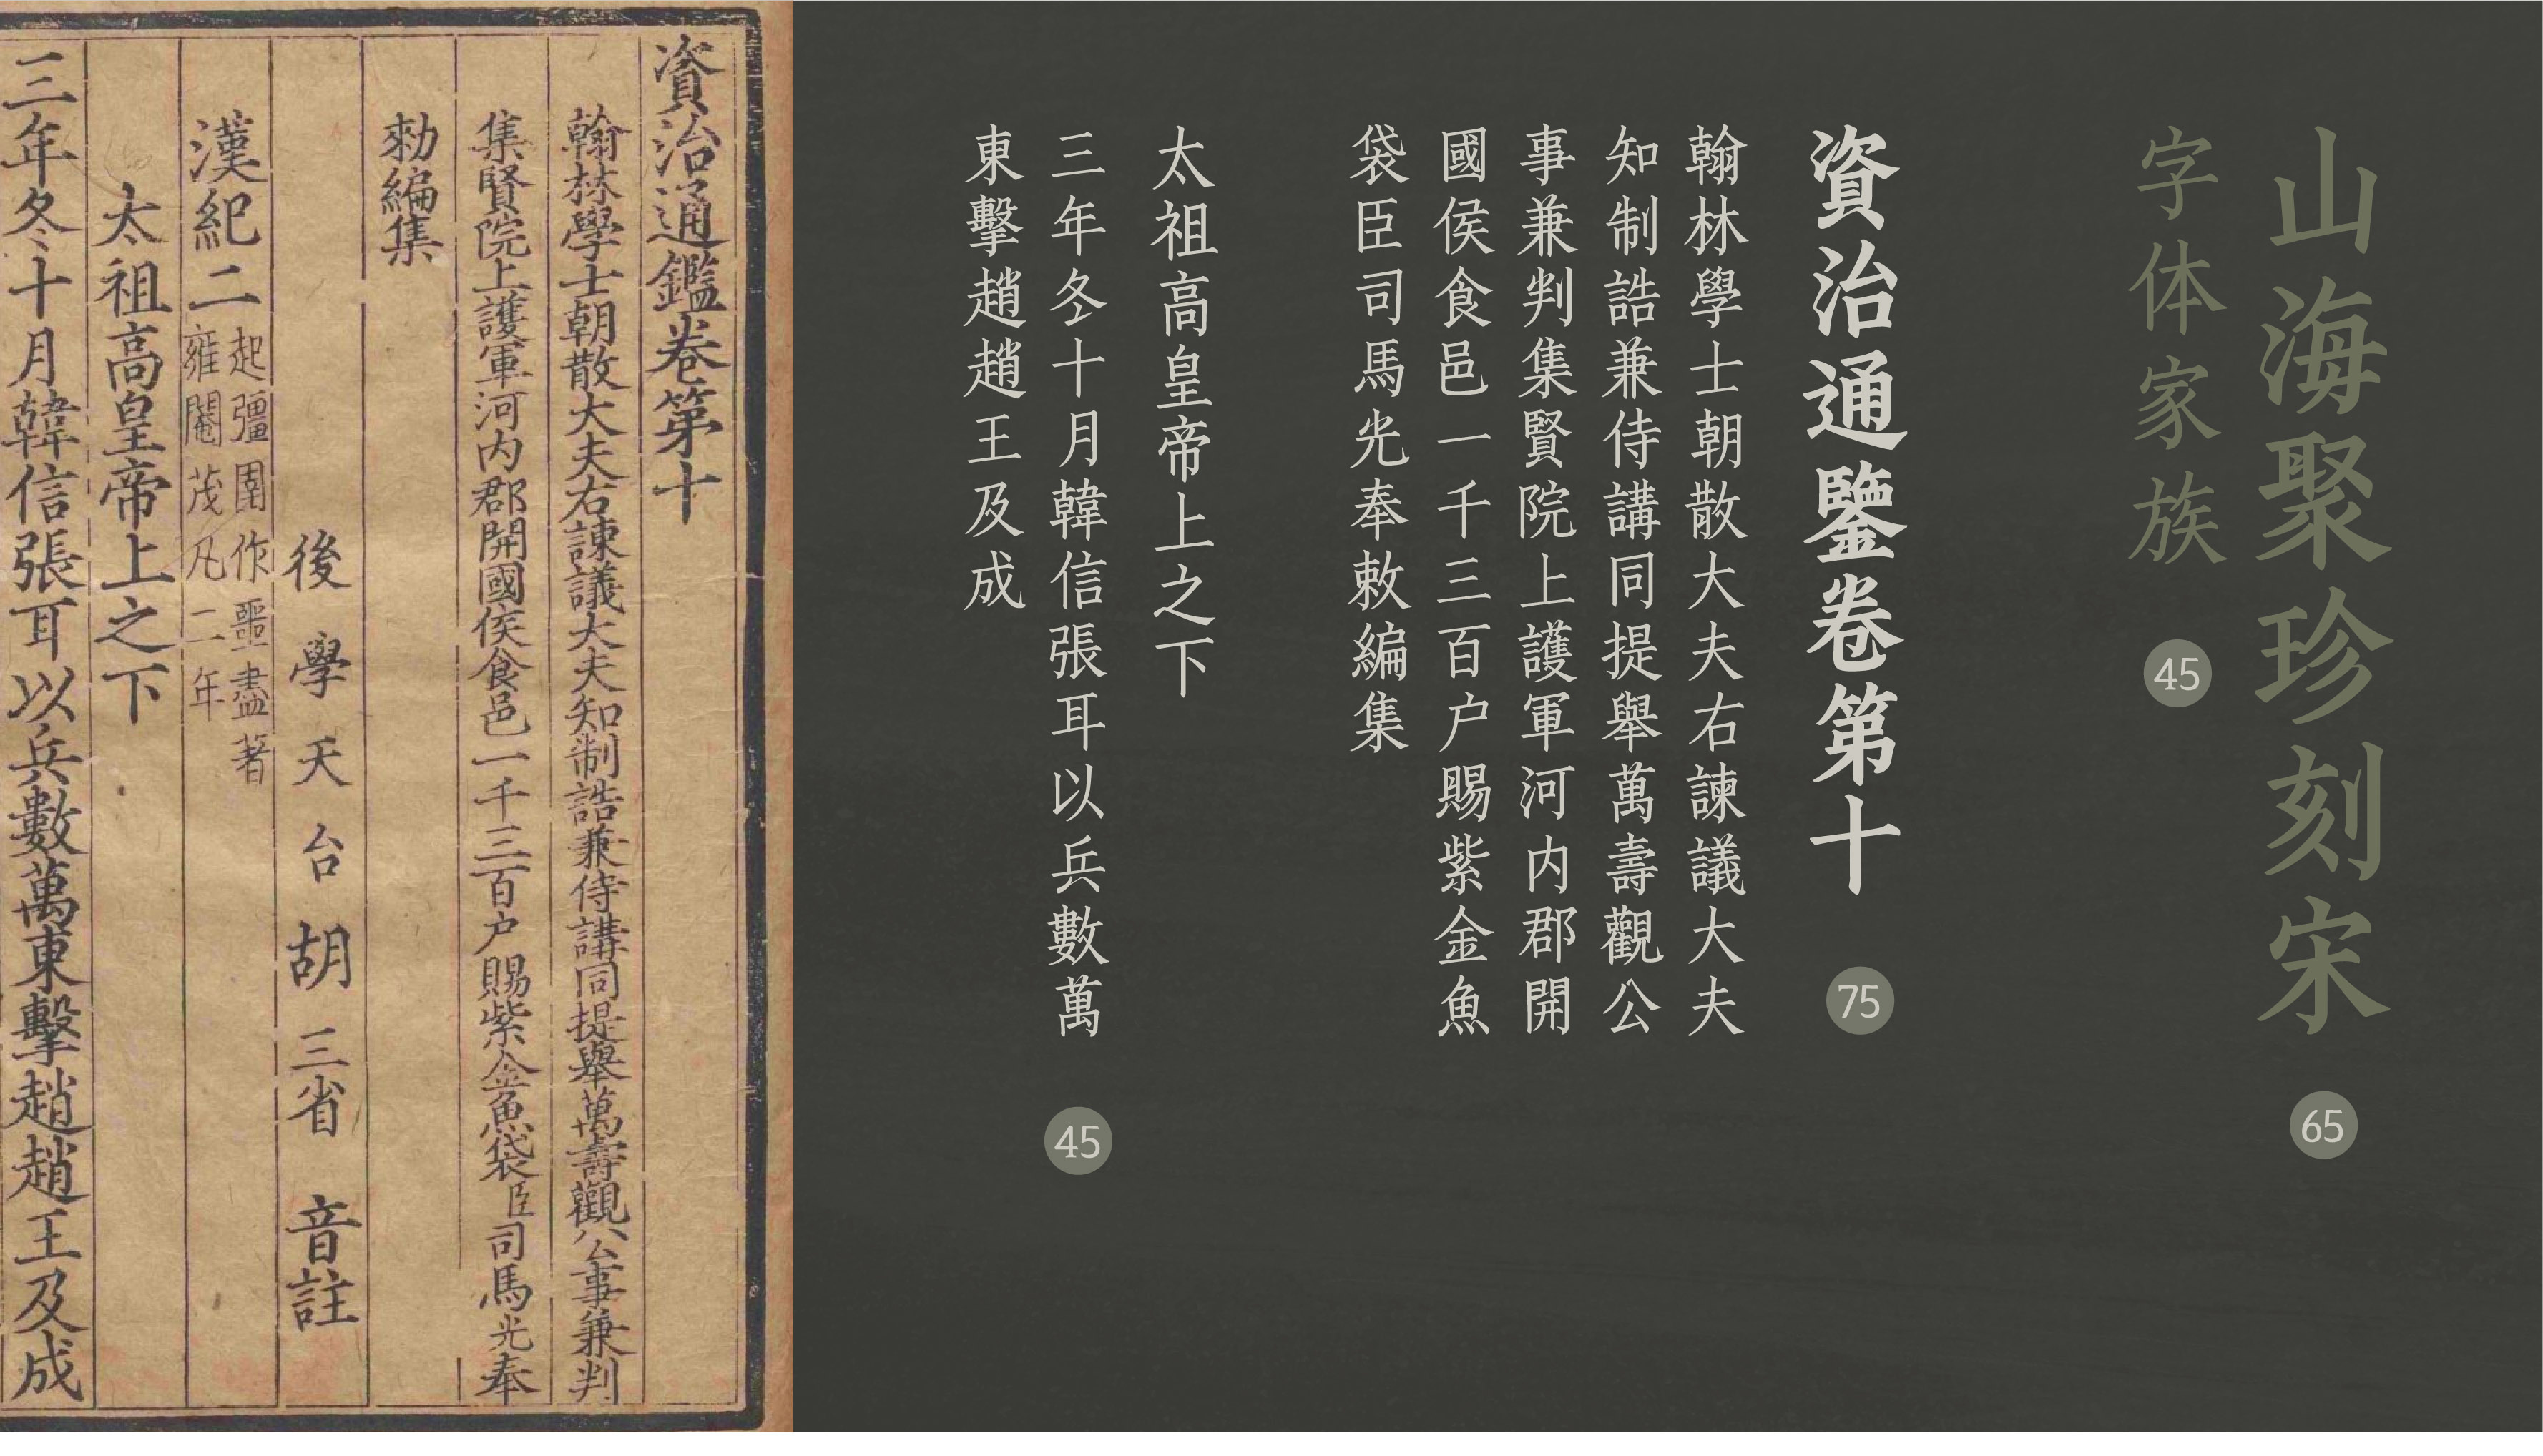 山海聚珍刻宋
65
字体家族
45
資治通鑒卷第十
75
翰林學士朝散大夫右諫議大夫
知制誥兼侍講同提舉萬壽觀公
事兼判集賢院上護軍河内郡開
國侯食邑一千三百户賜紫金魚
袋臣司馬光奉敕編集
太祖高皇帝上之下
三年冬十月韓信張耳以兵數萬
東擊趙趙王及成
45
資治通鑑卷第十
翰林學士朝散大夫右諫議大夫知制誥兼侍講同提舉萬壽觀公事兼判
集賢院上護軍河内郡開國侯食邑一千三百户賜紫金魚袋臣司馬光奉
勑編集
後學天台胡三省音註
漢紀二起彊圉作噩盡著
雍閹茂凡二年
太祖高皇帝上之下
三年冬十月韓信張耳以兵數萬東擊趙趙王及成